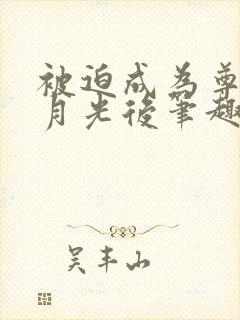 被迫成为尊
月光後笔趣
吴丰山